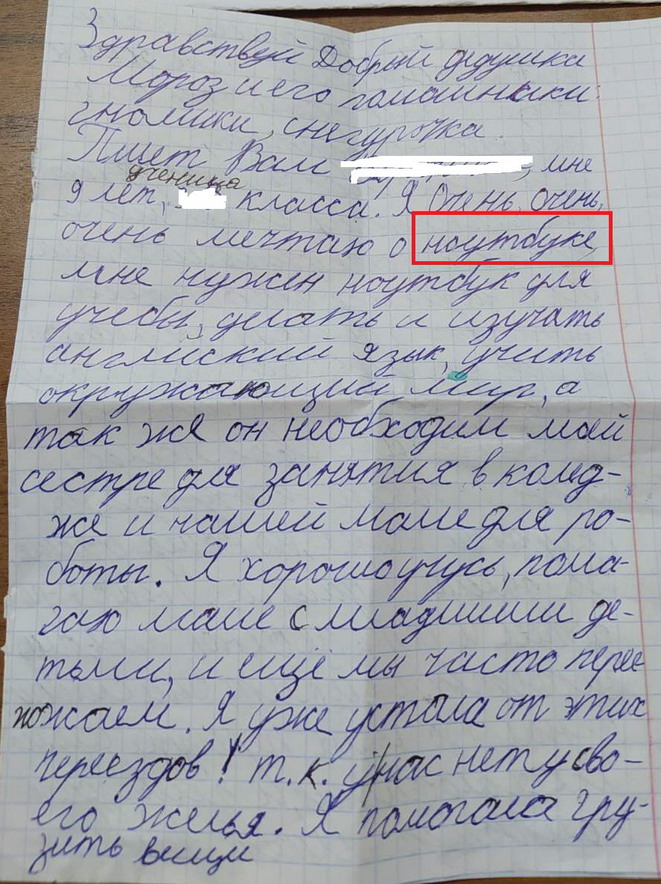 Здравствуй Добрый дедушка
Мороз и его помощники:
гномики, снегурочка.
Пишет Вам , мне
ученица
9 лет, класса. Я очень, очень,
очень мечтаю о ноутбуке,
мне нужен ноутбук для
учебы, делать и изучать
английский язык, учить
окружающий мир, а
так же он необходим моей
сестре для занятия в колед-
же и нашей маме для ро-
боты. Я хорошо учусь, пома-
гаю маме с младшими де-
тьми, и ещё мы часто перее
жаем. Я уже устала от этих
переездов! т.к. у нас нету сво-
его желья. Я помогала гру-
зить вещи